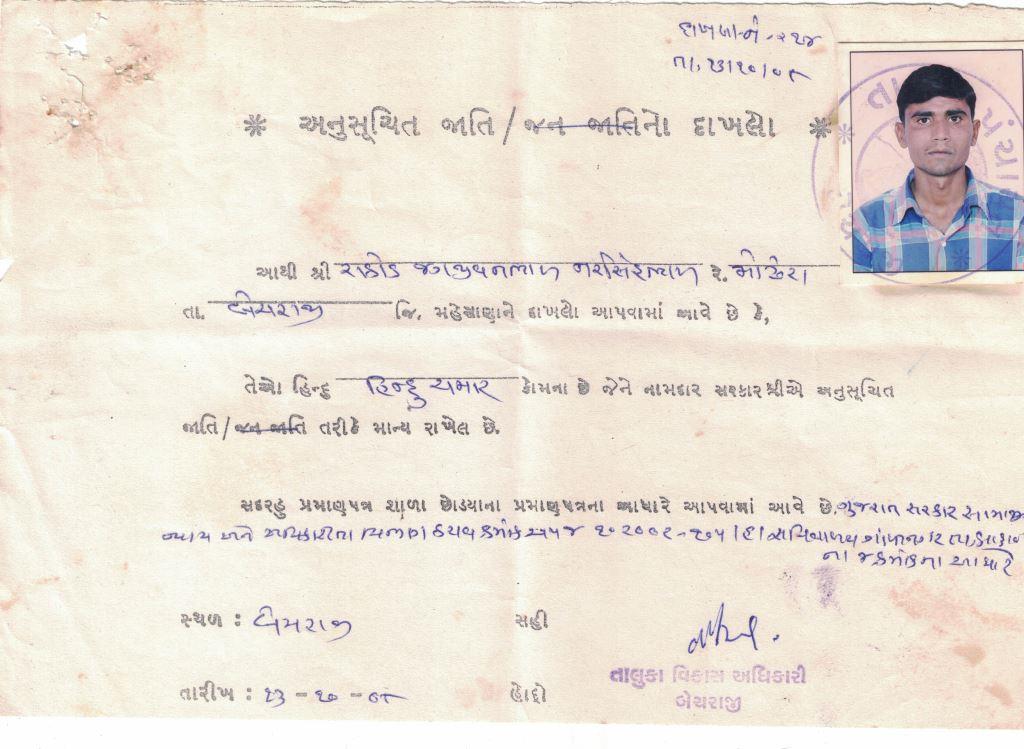 દાખલા નં - ૨૧૪
તા. ૨૩/૧૦/૦૯
* અનુસૂચિત જાતિ/જન જાતિનો દાખલો *
આથી શ્રી રાઠોડ જગજીવનલાલ નરસિંહલાલ રે. મોઢેરા
તા. બેચરાજી જિ. મહેસાણાને દાખલો આપવામાં આવે છે કે,
તેઓ હિન્દુ હિન્દુ ચમાર કોમના છે જેને નામદાર સરકારશ્રીએ અનુસૂચિત
જાતિ/જન જાતિ તરીકે માન્ય રાખેલ છે.
સદરહુ પ્રમાણપત્ર શાળા છોડયાના પ્રમાણપત્રના આધારે આપવામાં આવે છે. ગુજરાત સરકાર સામાજિ
ન્યાય અને અધિકારીતા વિભાગ ઠરાવ ક્રમાંક સચિવાલય ગાંધીનગર
ના જ ક્રમાંકના આધારે
સ્થળ : બેચરાજી સહી
તાલુકા વિકાસ અધિકારી
તારીખ : ૨૩ - ૧૦ - ૦૯ હોદ્દો
બેચરાજી